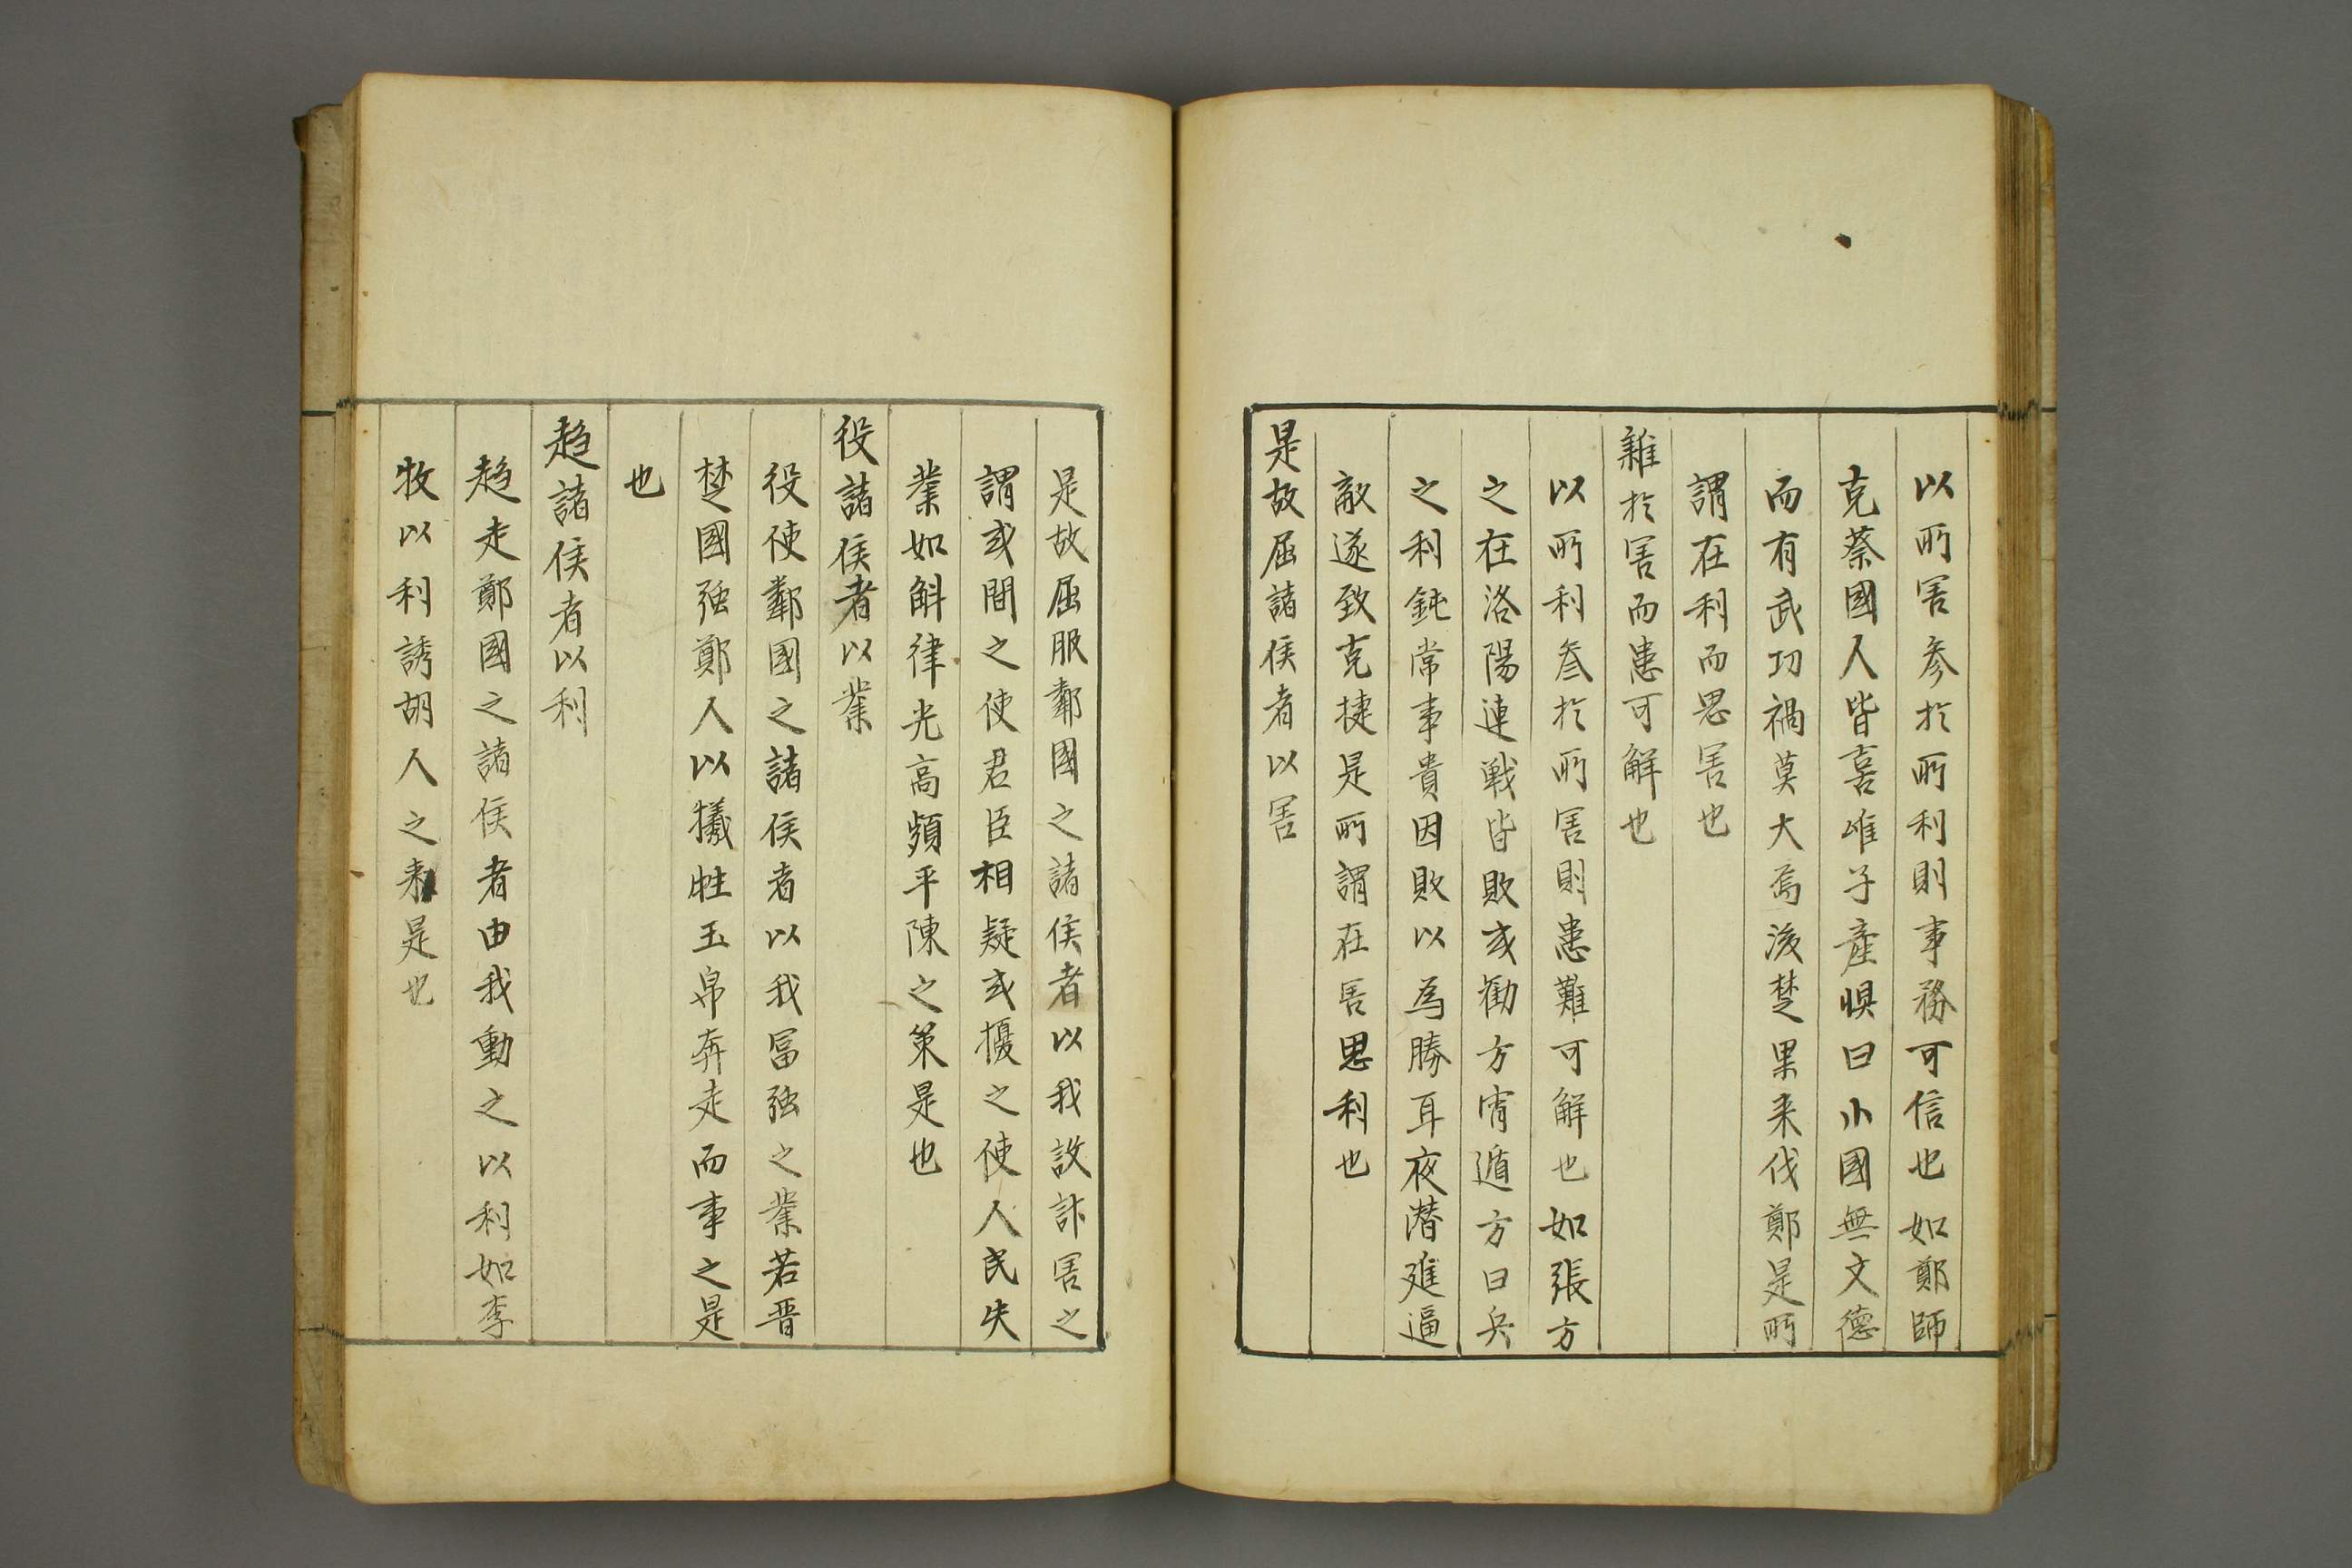 以所害参於所利則事務可信也如鄭師
克蔡國人皆喜唯子產惧曰小國無文德
而有武功禍莫大焉後楚果来伐鄭是所
謂在利而思害也
雜於害而患可解也
以所利叅於所害則患難可解也如張方
之在洛陽連戦皆敗或勸方宵遁方曰兵
之利鈍常事貴因敗以為勝耳夜潜進逼
敵遂致克捷是所謂在害思利也
是故屈諸侯者以害
是故屈服鄰國之諸侯者以我設計害之
謂或間之使君臣相疑或擾之使人民失
業如斛律光高熲平陳之策是也
役諸侯者以業
役使鄰國之諸侯者以我冨强之業若晋
楚國强鄭人以犠牲玉帛奔走而事之是
也
趋諸侯者以利
趋走鄭國之諸侯者由我動之以利如李
牧以利誘胡人之来是也